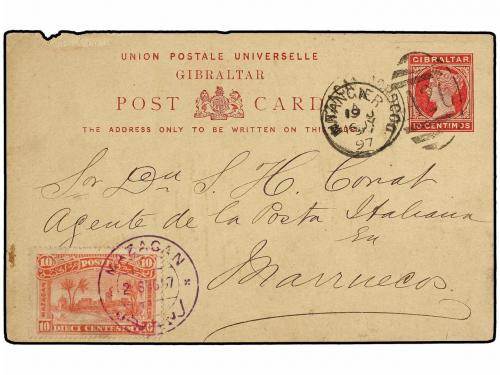 UNION POSTALE UNIVERSELLE
GIBRALTAR
POST CARD
THE ADDRESS ONLY TO BE WRITTEN ON THIS
GIBRALTAR
10 CENTIMOS
TANGIER
A
19
97
Sor Dn S. H. Coriat
Agente de la Posta Italiana
En
Marruecos
10 POSTA 10
MAZAGAN
10 DIECI CENTES
MAZAGAN